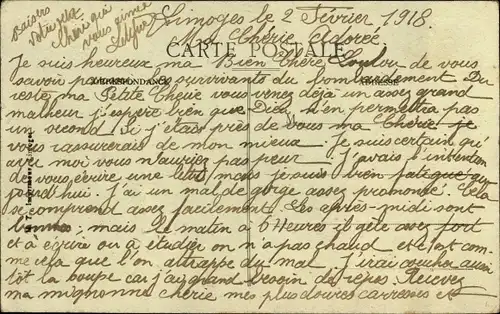 Limoges le 2 Février 1918.
Ma Chérie Adorée
CARTE POSTALE
Je suis heureux ma Bien Chère Loulou de vous
CORRESPONDANCE
ADRESSE
savoir parmi les survivants du bombardement Du
reste ma Petite Cherie vous venez déjà un assez grand
malheur j'espère bien que Dieu n'en permettra pas
un second Si j'étais près de vous ma Chérie je
vous rassurerais de mon mieux Je suis certain qu'
avec moi vous n'auriez pas peur J'avais l'intention
de vous écrire une lettre mais je suis bien fatigué auj
jourd'hui. J'ai un mal de gorge assez prononcé. Cela
se comprend assez facilement. Les après-midi sont
bonnes, mais le matin à 6 Heures il gèle assez fort
et à écrire ou à étudier on n'a pas chaud et c'est com
me cela que l'on attrappe du mal. J'irai coucher aussi
tôt la soupe car j'ai grand besoin de repos. Recevez
ma mignonne chérie mes plus douces caresses et
baisers
votre
Chéri qui
vous aime